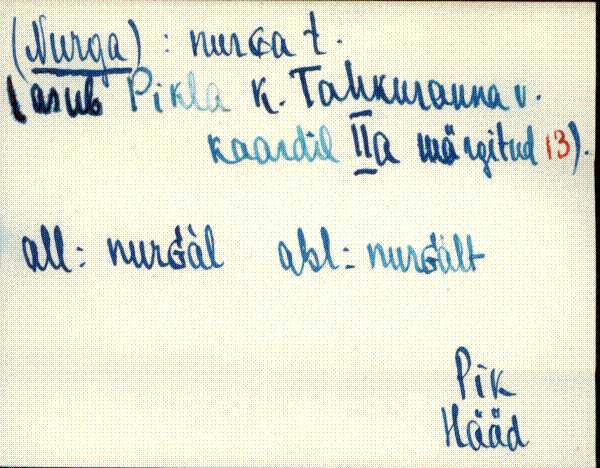 (Nurga) : nurGa t.
(asub Pikla k. Tahkuranna v.
kaardil IIa märgitud 13).
all: nurG̀àl abl: nurG̀àlt
Pik
Hääd